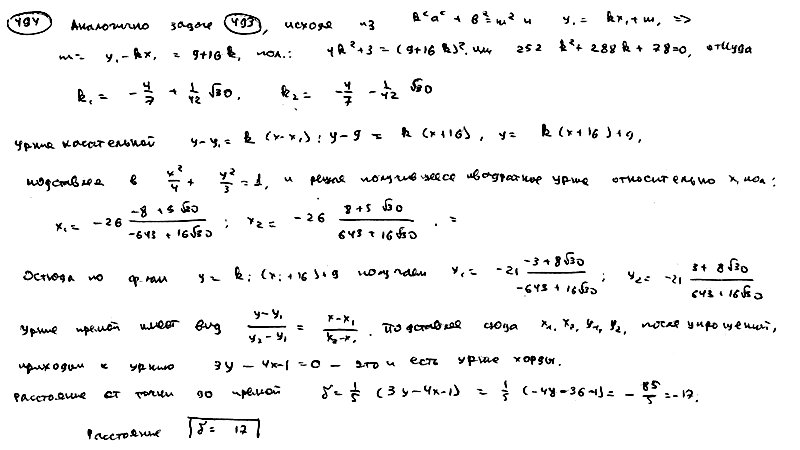 494 Аналогично задаче 493, исходя из k²a² + b² = m² и y₁ = kx₁ + m, =>
m = y₁ - kx₁ = 9+16k, пол.: 4k²+3 = (9+16k)², или 252 k² + 288k + 78=0, откуда
k₁ = -4/7 + 1/42 √30, k₂ = -4/7 - 1/42 √30
Ур-ние касательной y-y₁ = k (x-x₁); y-9 = k (x+16), y = k(x+16)+9,
подставляя в x²/4 + y²/3 = 1, и решая получившееся квадратное ур-ние относительно x, пол:
x₁ = -26 (-8+5√30)/(-643+16√30); x₂ = -26 (8+5√30)/(643+16√30). =
Отсюда по ф-лам y = kᵢ(xᵢ+16)+9 получаем y₁ = -21 (-3+8√30)/(-643+16√30); y₂ = -21 (3+8√30)/(643+16√30)
Ур-ние прямой имеет вид (y-y₁)/(y₂-y₁) = (x-x₁)/(x₂-x₁). Подставляя сюда x₁, x₂, y₁, y₂, после упрощений,
приходим к ур-нию 3y - 4x-1 = 0 - это и есть ур-ние хорды.
Расстояние от точки до прямой δ = 1/5 (3y-4x-1) = 1/5 (-48-36-1) = -85/5 = -17.
Расстояние δ = 17